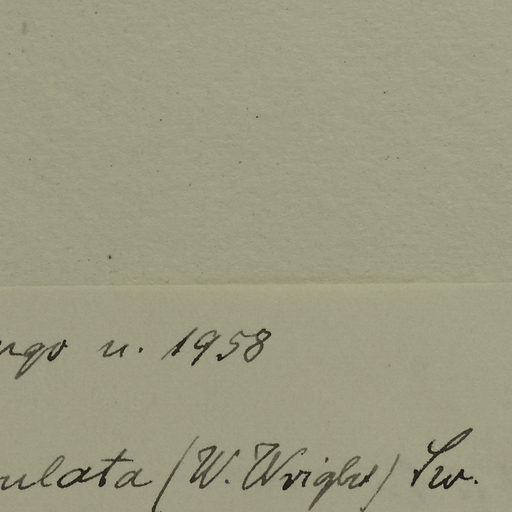 ngo n. 1958
ulata (W. Wright) Sw.